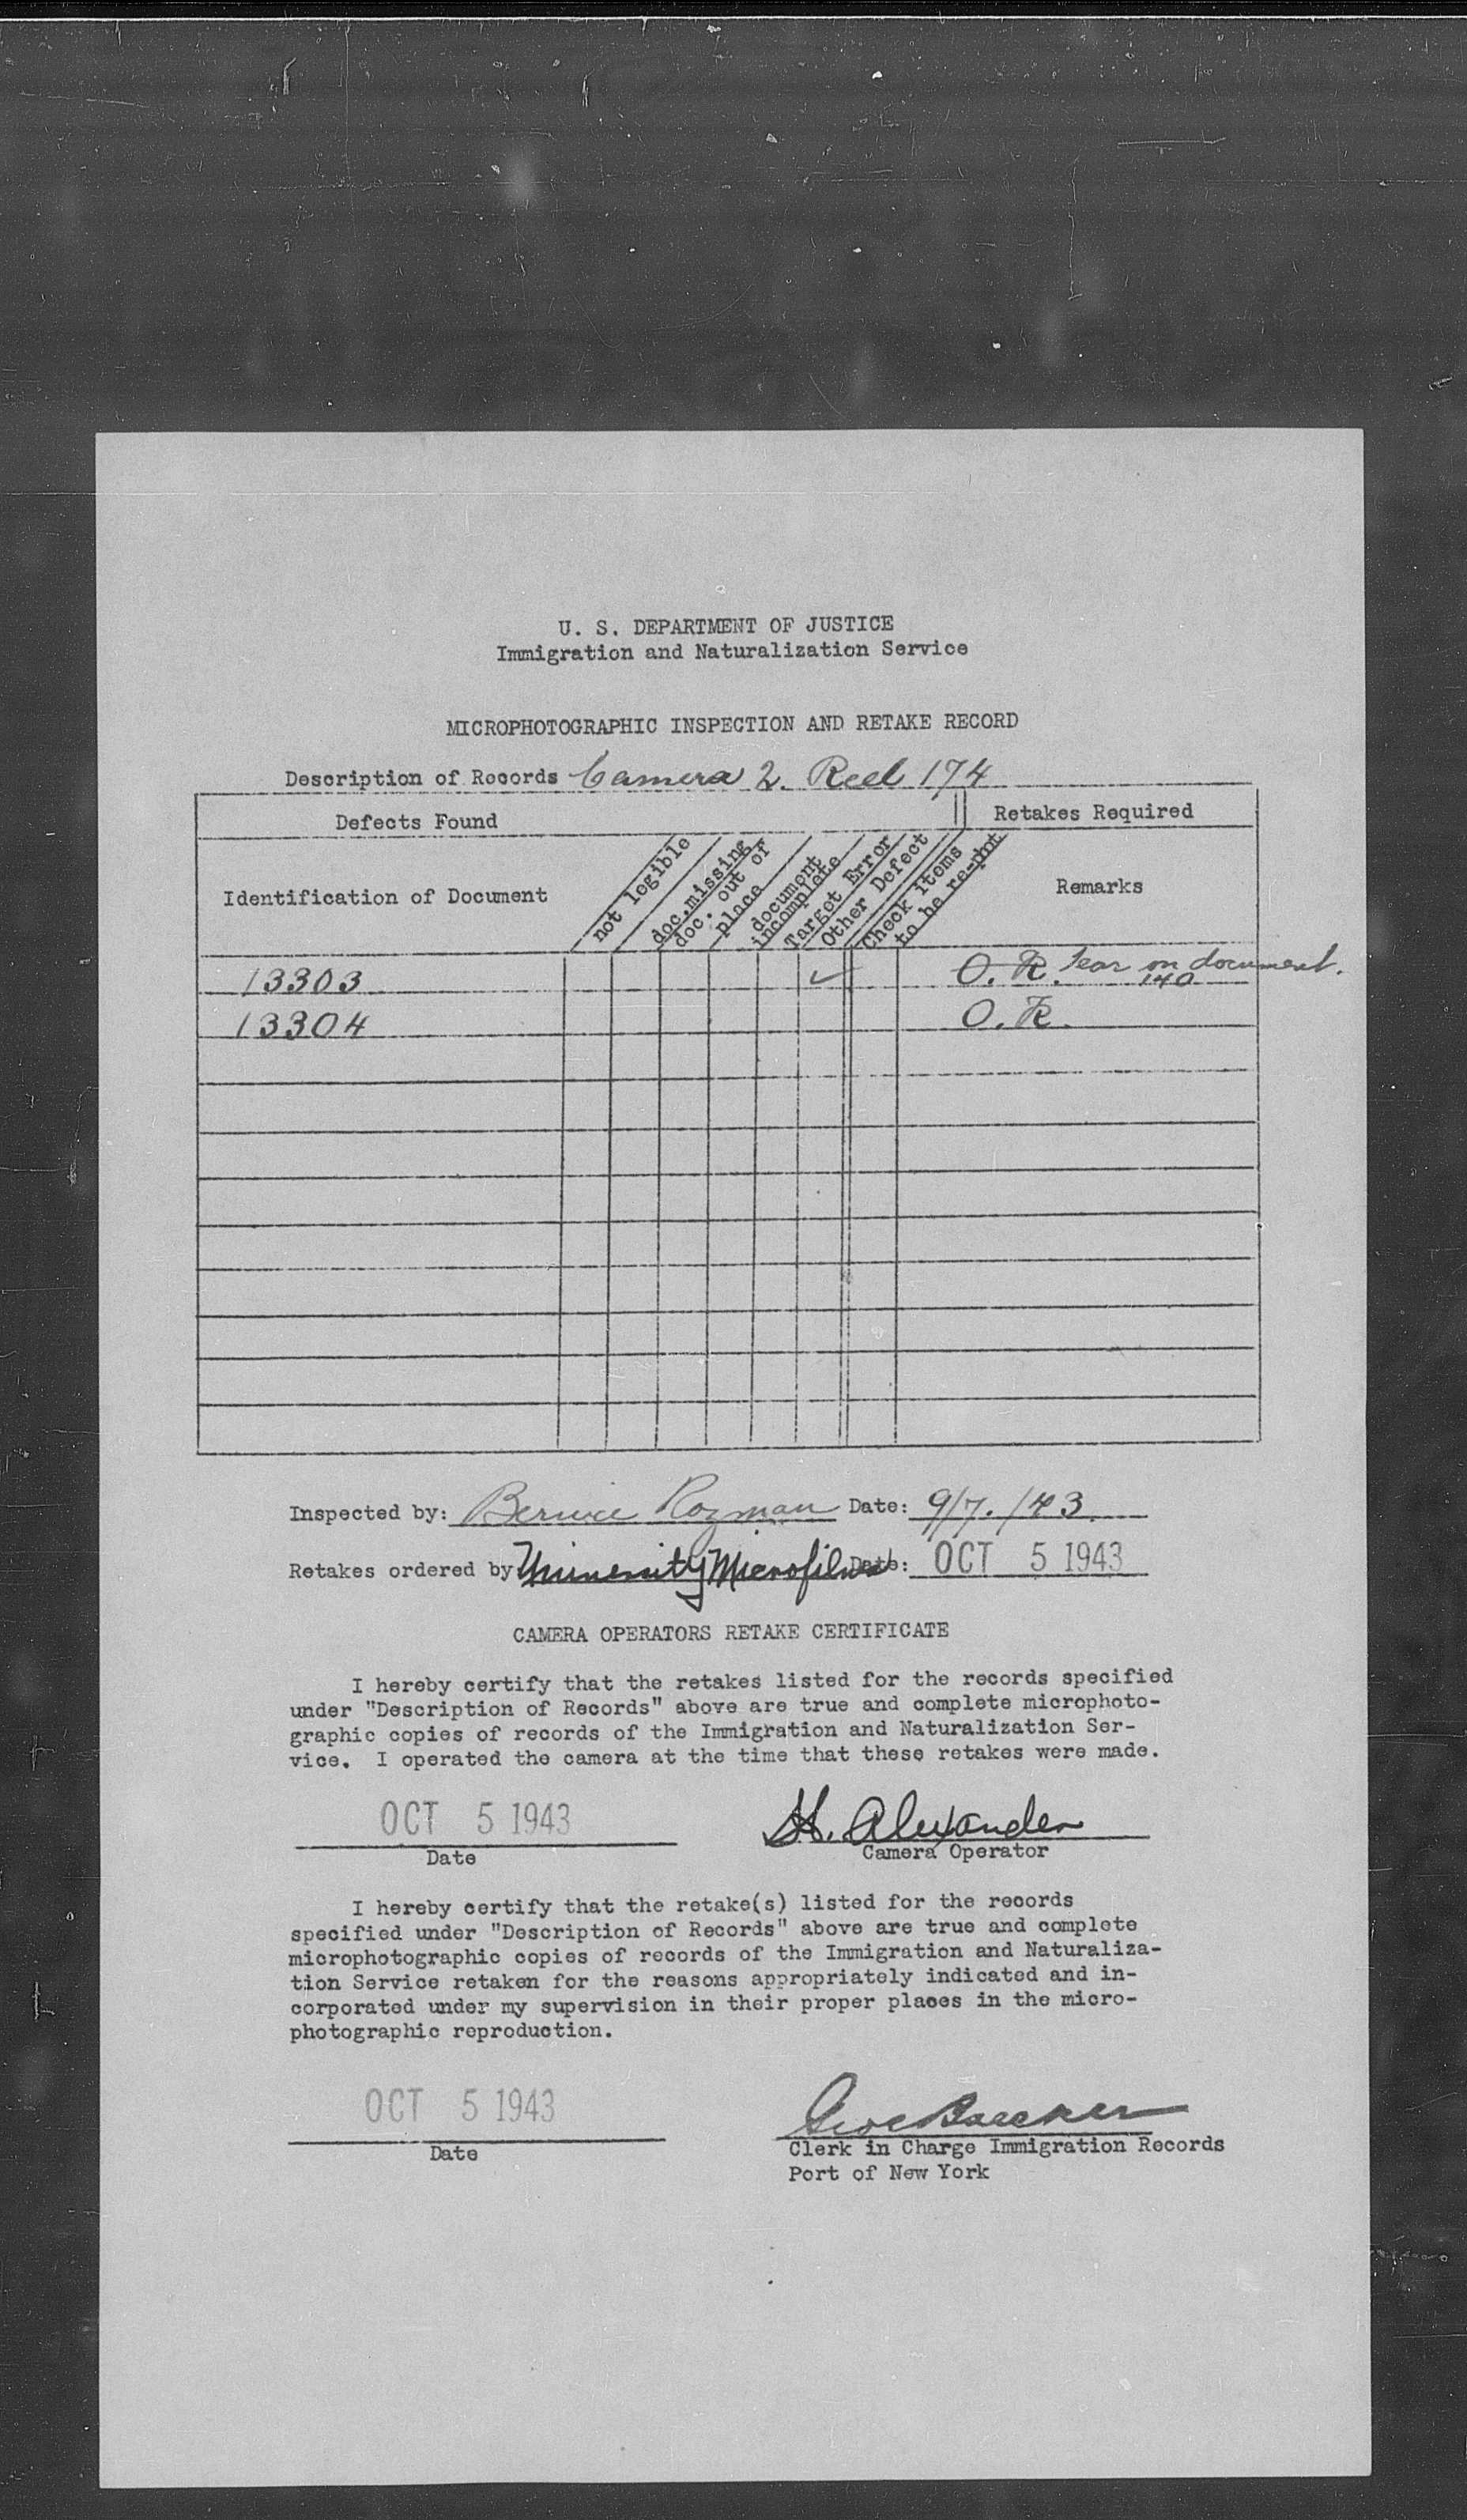 U. S. DEPARTMENT OF JUSTICE
Immigration and Naturalization Service
MICROPHOTOGRAPHIC INSPECTION AND RETAKE RECORD
Description of Records Camera 2. Reel 174
Defects Found
Retakes Required
Identification of Document
not legible
doc.missing
doc. out of
place
document
incomplete
Target Error
Other Defect
Check items
to be re-phot
Remarks
13303 ✓ O. R. tear on document.
140
13304 O. R.
Inspected by: Bernice Rozman Date: 9/7./43.
Retakes ordered by: University Microfilms Date: OCT 5 1943
CAMERA OPERATORS RETAKE CERTIFICATE
I hereby certify that the retakes listed for the records specified
under "Description of Records" above are true and complete microphoto-
graphic copies of records of the Immigration and Naturalization Ser-
vice. I operated the camera at the time that these retakes were made.
OCT 5 1943 H. Alexander
Date Camera Operator
I hereby certify that the retake(s) listed for the records
specified under "Description of Records" above are true and complete
microphotographic copies of records of the Immigration and Naturaliza-
tion Service retaken for the reasons appropriately indicated and in-
corporated under my supervision in their proper places in the micro-
photographic reproduction.
OCT 5 1943
Date Clerk in Charge Immigration Records
Port of New York